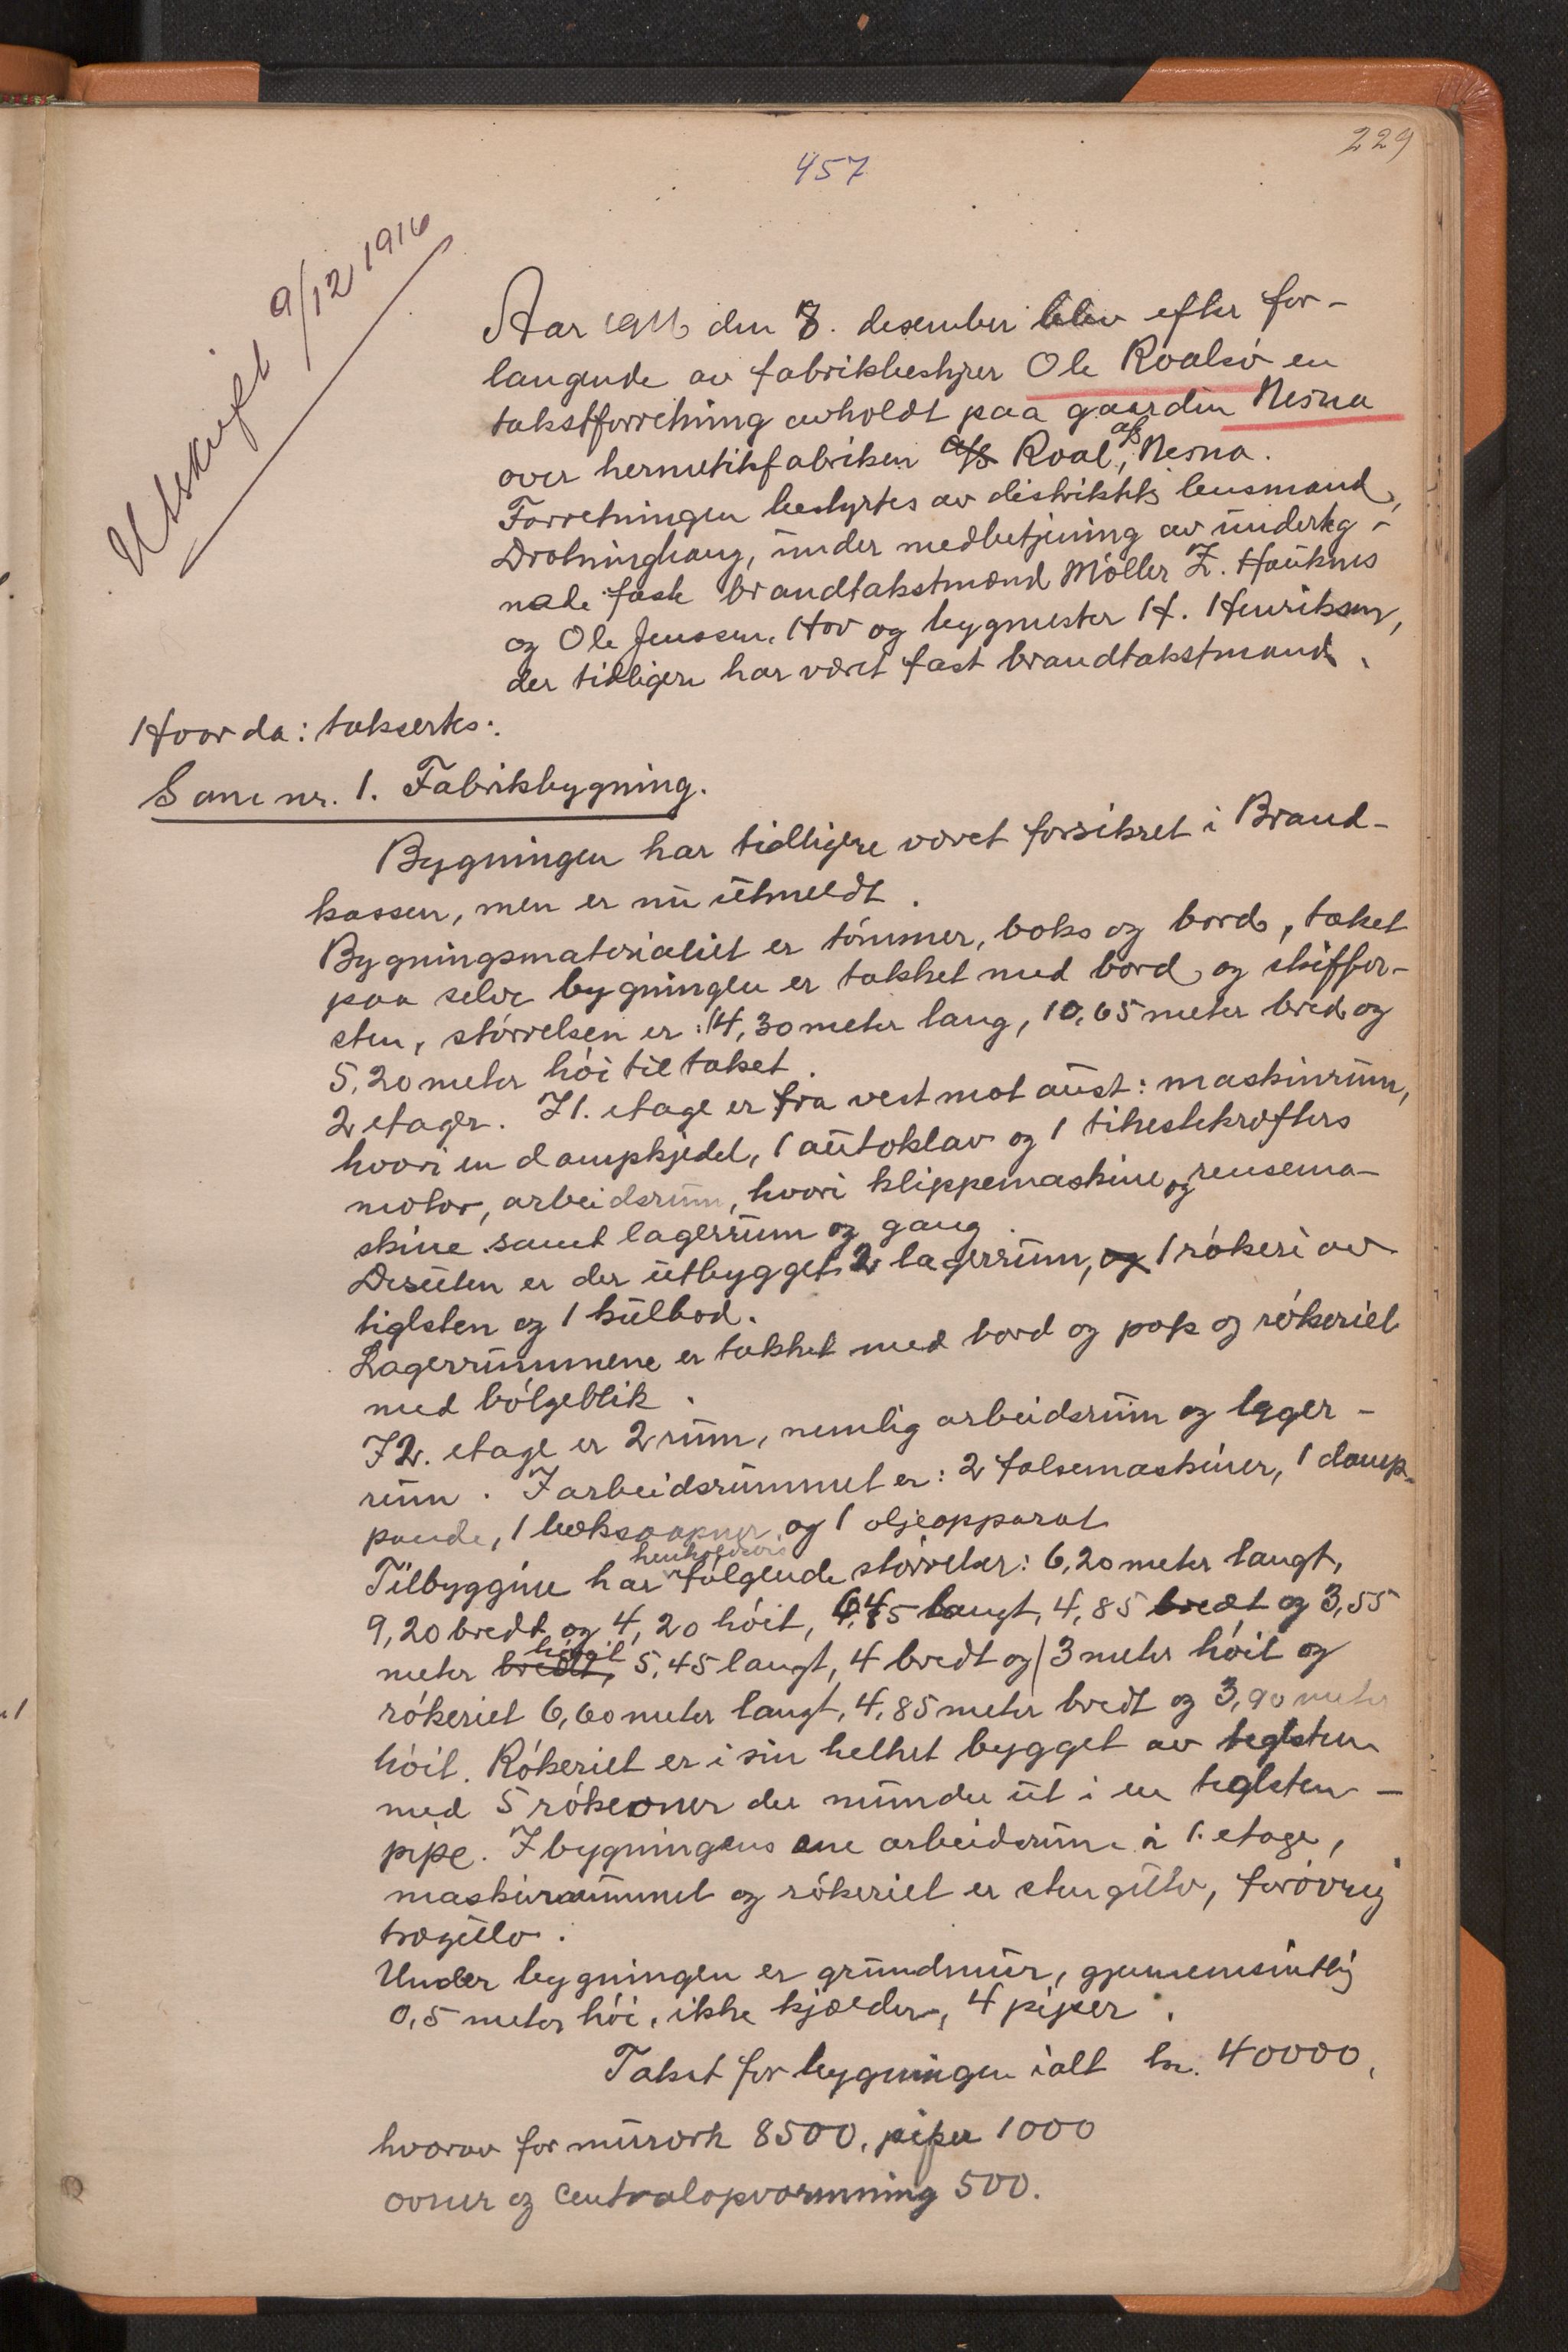 229
457
Utskrift 9/12 1916
Aar 1916 den 8. desember blev efter for-
langende av fabrikbestyrer Ole Roalsö en
takstforretning avholdt paa gaarden Nesna
over hermetikfabriken a/s Roal, a/s Nesna.
Forretningen bestyrtes av distriktets lensmand,
Drotninghaug, under medbetjening av underteg-
nede faste brandtakstmænd Möller Z. Hauknes
og Ole Jenssen, Hov og bygmester H. Henriksen,
der tidligere har været fast brandtakstmand.
Hvor da: taksertes:
Som nr. 1. Fabrikbygning.
Bygningen har tidligere været forsikret i Brand-
kassen, men er nu utmeldt.
Bygningsmaterialiet er tömmer, boks og bord, taket
paa selve bygningen er tækket med bord og skiffer-
sten, störrelsen er: 14,30 meter lang, 10,65 meter bred og
5,20 meter höi til taket.
2 etager. I 1. etage er fra vest mot aust: maskinrum,
hvori en dampkjedel, 1 autoklav og 1 tihestekræfters
motor, arbeidsrum, hvori klippemaskine og rensema-
skine samt lagerrum og gang.
Desuten er der utbygget 2 lagerrum, og 1 rökeri av
tiglsten og 1 kulbod.
Lagerrummene er tækket med bord og pap og rökeriet
med bölgeblik.
I 2. etage er 2 rum, nemlig arbeidsrum og lager-
rum. I arbeidsrummet er: 2 falsemaskiner, 1 damp-
pande, 1 boksaapner og 1 oljeapparat
henholdsvis
Tilbyggene har fölgende störrelser: 6,20 meter langt,
9,20 bredt og 4,20 höit, 6,45 langt, 4,85 bredt og 3,55
höit
meter bredt, 5,45 langt, 4 bredt og 3 meter höit og
rökeriet 6,60 meter langt, 4,85 meter bredt og 3,90 meter
höit. Rökeriet er i sin helhet bygget av teglsten
med 5 rökeovner der munder ut i en teglsten-
pipe. I bygningens ene arbeidsrum i 1. etage,
maskinrummet og rökeriet er stengulv, forövrig
trægulv.
Under bygningen er grundmur, gjennemsnitlig
0,5 meter höi, ikke kjælder, 4 piper.
Takst for bygningen ialt kr. 40000,
hvorav for murverk 8500, piper 1000
ovner og centralopvarmning 500.